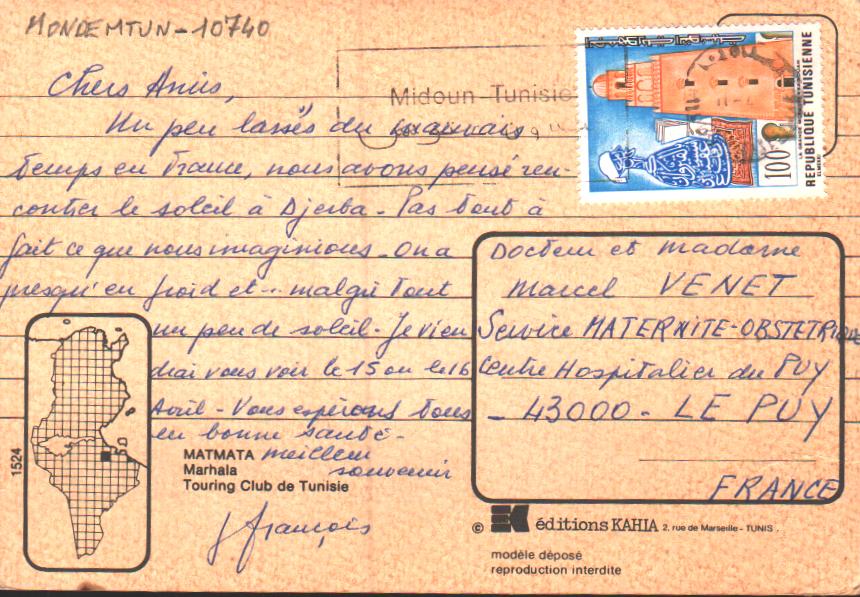 MONDEMTUN-10740
Midoun-Tunisie
100
REPUBLIQUE TUNISIENNE
Chers Amis,
Un peu lassés du mauvais
temps en France, nous avons pensé ren-
contrer le soleil à Djerba - Pas tout à
fait ce que nous imaginions - On a
presqu'eu froid et - malgré tout
un peu de soleil - Je vien
drai vous voir le 15 ou le 16
Avril - Vous espérons tous
en bonne santé -
meilleur
souvenir
J François
Docteur et madame
Marcel VENET
Service MATERNITE-OBSTETRIQUE
Centre Hospitalier du PUY
- 43000 - LE PUY
FRANCE
1524
MATMATA
Marhala
Touring Club de Tunisie
© éditions KAHIA 2, rue de Marseille - TUNIS.
modèle déposé
reproduction interdite